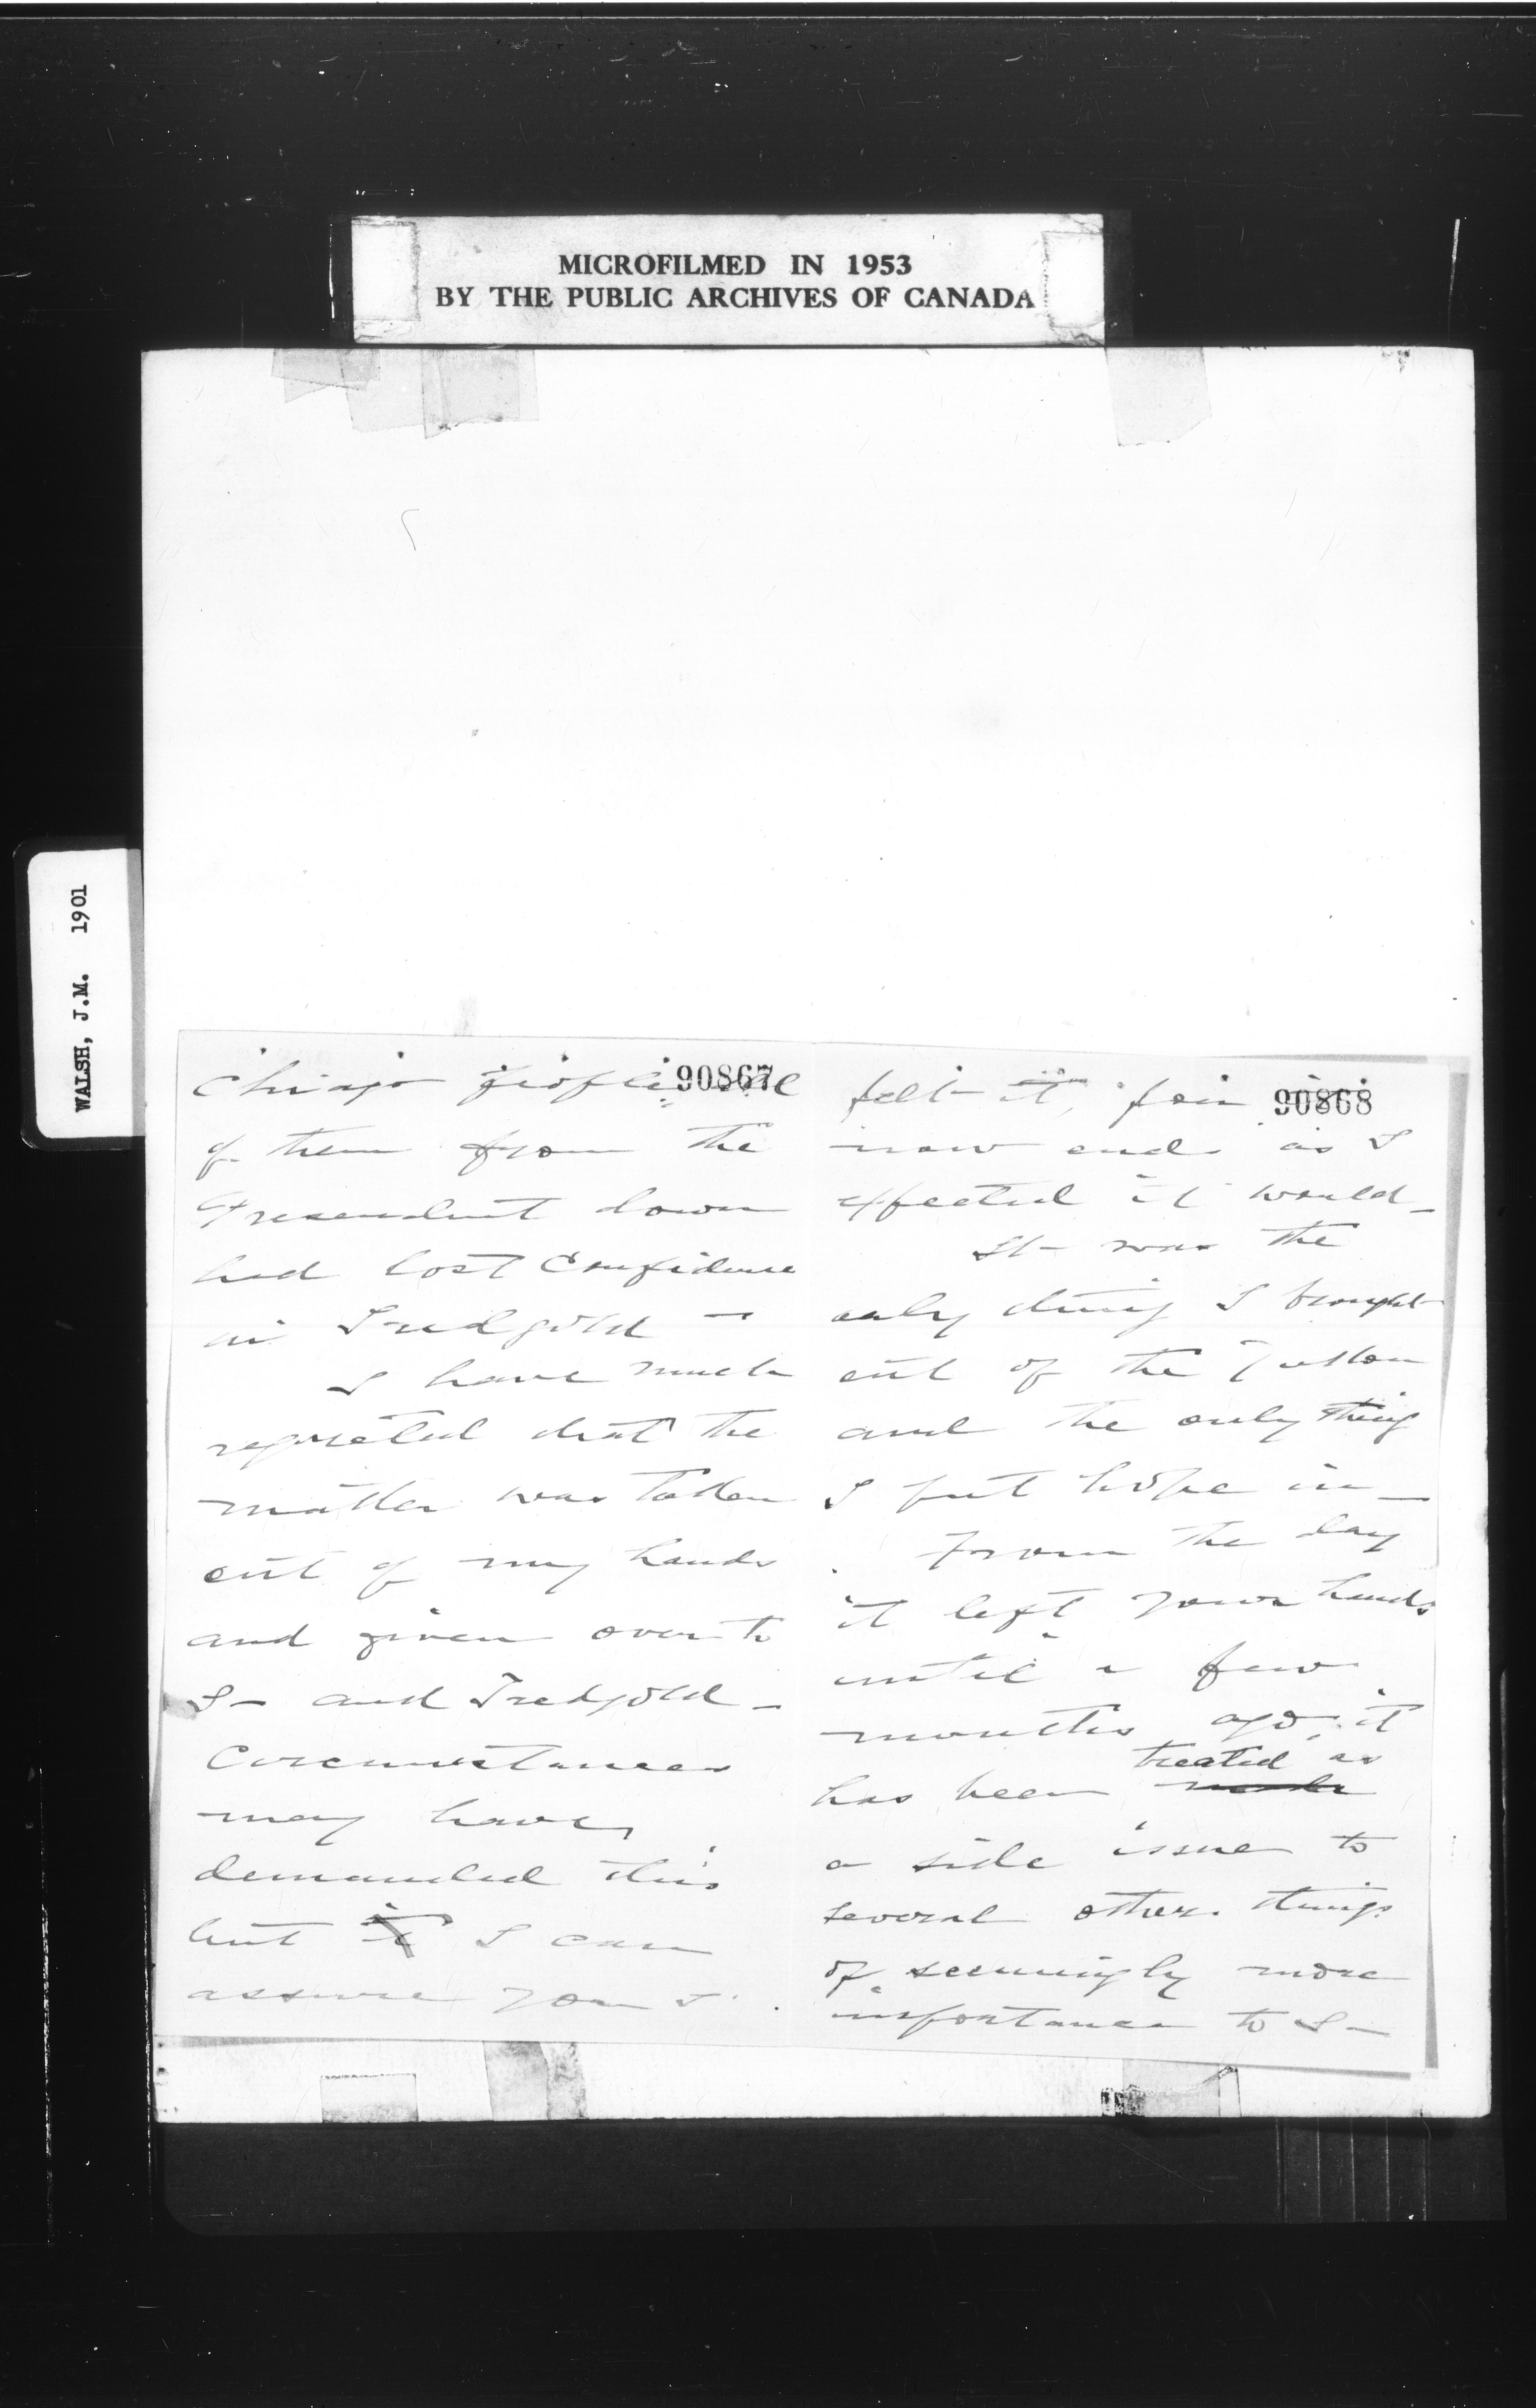 MICROFILMED IN 1953
BY THE PUBLIC ARCHIVES OF CANADA
WALSH, J.M. 1901
90867
Chicago people all
of them from the
Presendent down
had lost Confidence
in Tredgold –
I have much
regreted that the
matter was taken
out of my hands
and given over to
S– and Tredgold –
Circumstances
may have
demanded this
but it I can
assure you I
90868
felt it, for
now ends as I
expected it would –
It was the
only thing I brought
out of the Yukon
and the only thing
I put hope in –
From the day
it left your hands
until a few
months ago, it
treated as
has been made
a side issue to
several other things
of seemingly more
importance to S–